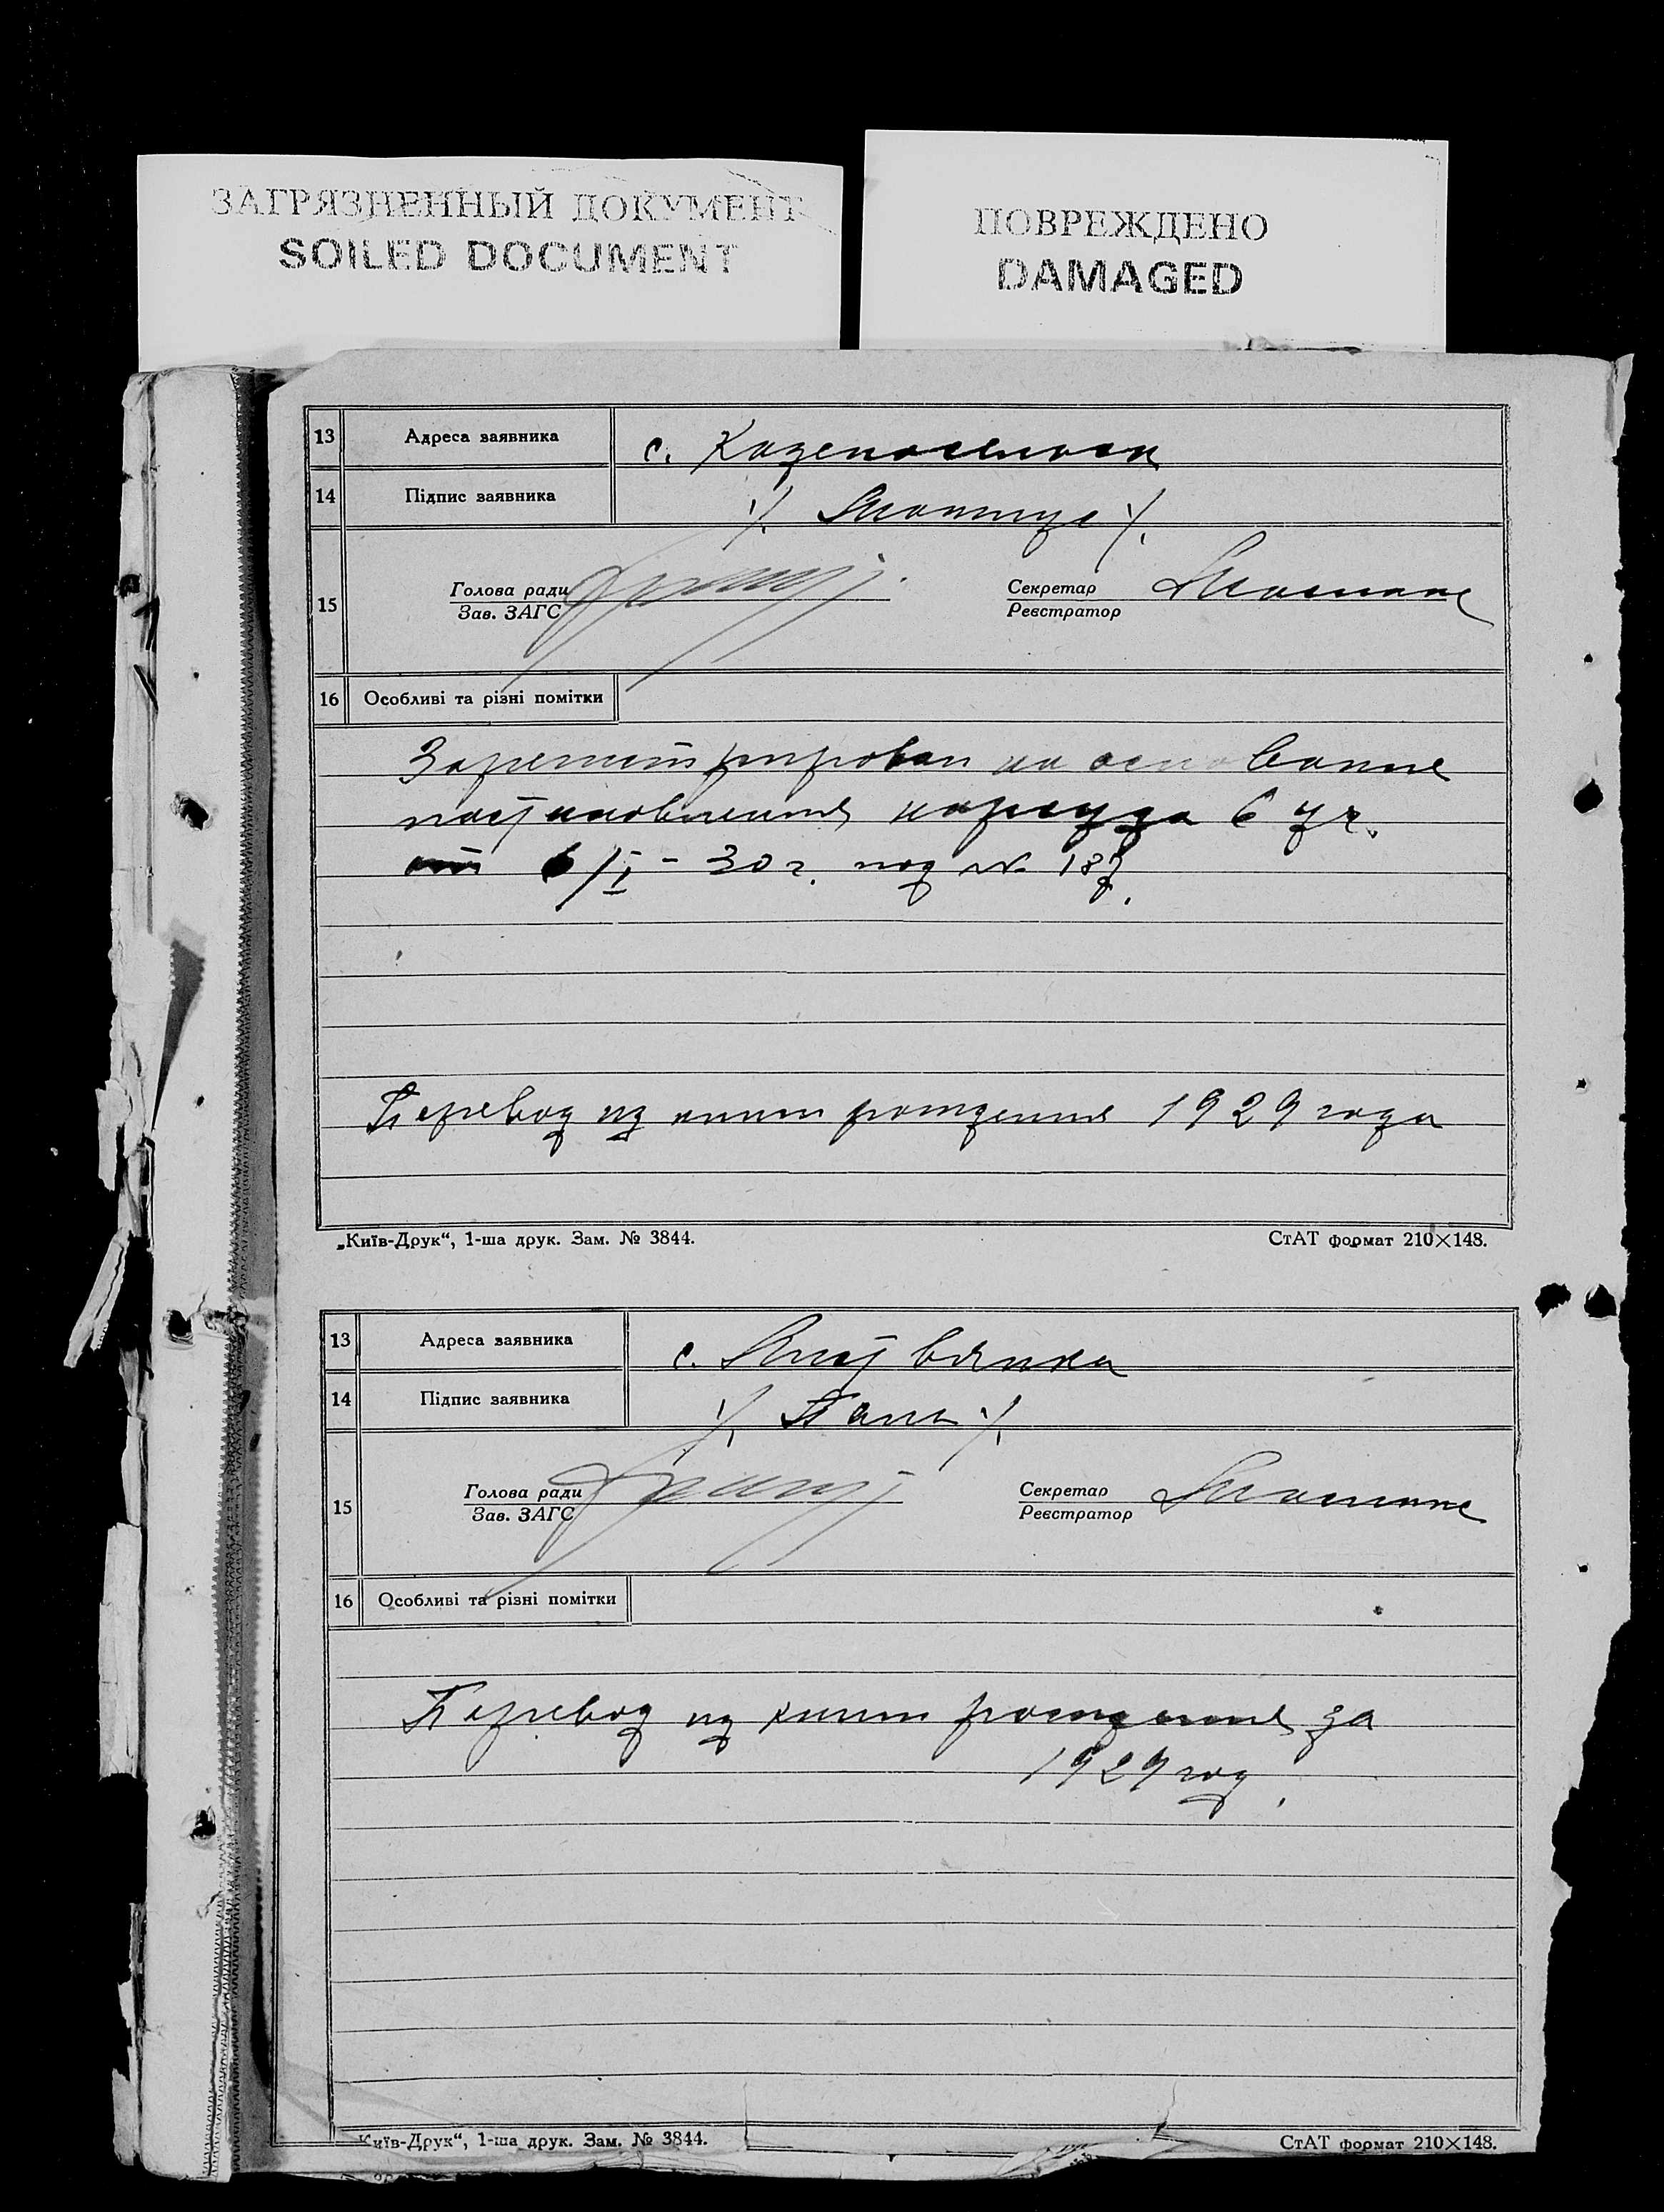 ЗАГРЯЗНЕННЫЙ ДОКУМЕНТ
SOILED DOCUMENT
ПОВРЕЖДЕНО
DAMAGED
13 Адреса заявника с.
14 Підпис заявника
15 Голова ради Секретар
Зав. ЗАГС Реєстратор
16 Особливі та різні помітки
на основание
постановления нарсуда 6 уч.
от 6/I - 30 г. под №
Перевод из книги рождения 1929 года
„Київ-Друк“, 1-ша друк. Зам. № 3844. СтАТ формат 210×148.
13 Адреса заявника с.
14 Підпис заявника
15 Голова ради Секретар
Зав. ЗАГС Реєстратор
16 Особливі та різні помітки
Перевод из книги рождения за
1929 год.
Київ-Друк“, 1-ша друк. Зам. № 3844. СтАТ формат 210×148.